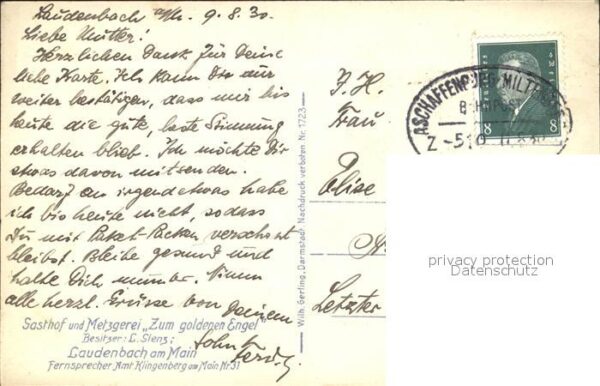 Laudenbach a/M. 9.8.30.
Liebe Mutter!
Herzlichen Dank für Deine
liebe Karte. Ich kann Dir nur
weiter bestätigen, dass mir bis
heute die gute, beste Stimmung
erhalten blieb. Ich möchte Dir
etwas davon mitsenden.
Bedarf an irgendetwas habe
ich bis heute nicht, sodass
Du mit Paket-Packen verschont
bleibst. Bleibe gesund und
halte Dich munter. Nimm
alle herzl. Grüsse von Deinem
Sohn
Ferdy
Gasthof und Metzgerei „Zum goldenen Engel"
Besitzer: L. Slenz;
Laudenbach am Main
Fernsprecher Amt Klingenberg am Main Nr 31
Wilh. Gerling, Darmstadt. Nachdruck verboten. Nr. 1723
ASCHAFFENBURG-MILTENBERG
BAHNPOST
Z
8 8
Frau
Elise
Letzter
privacy protection
Datenschutz